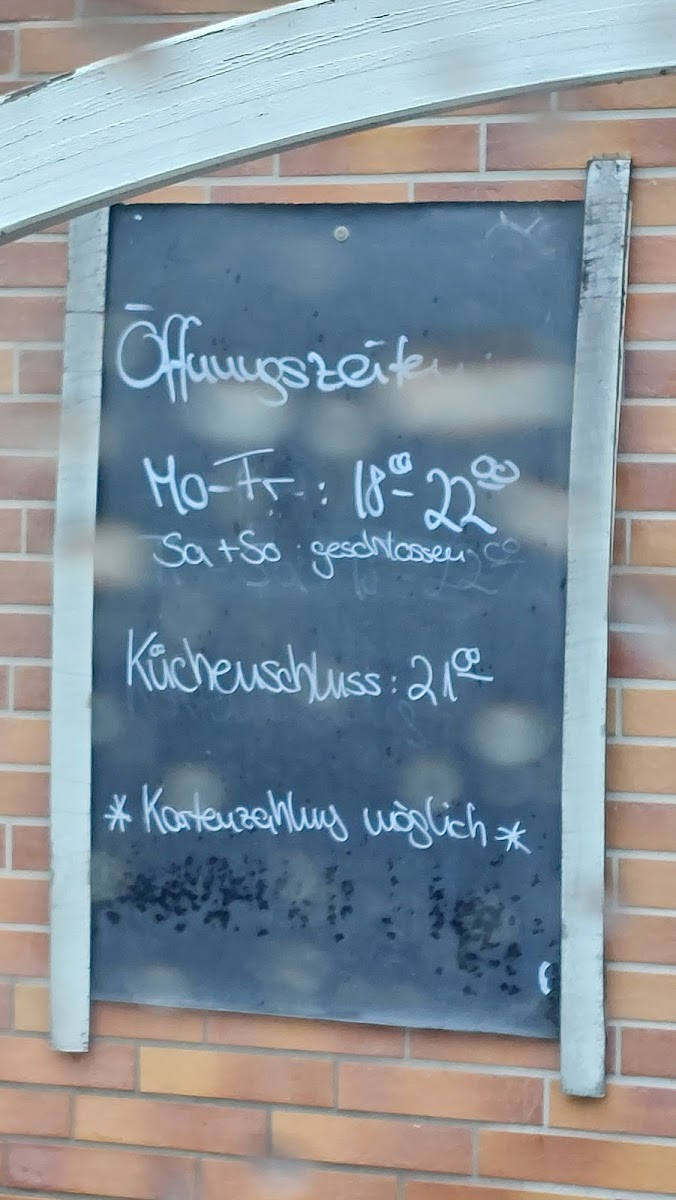 Öffnungszeiten
Mo-Fr.: 18⁰⁰-22⁰⁰
Sa+So: geschlossen
Küchenschluss: 21⁰⁰
* Kartenzahlung möglich *